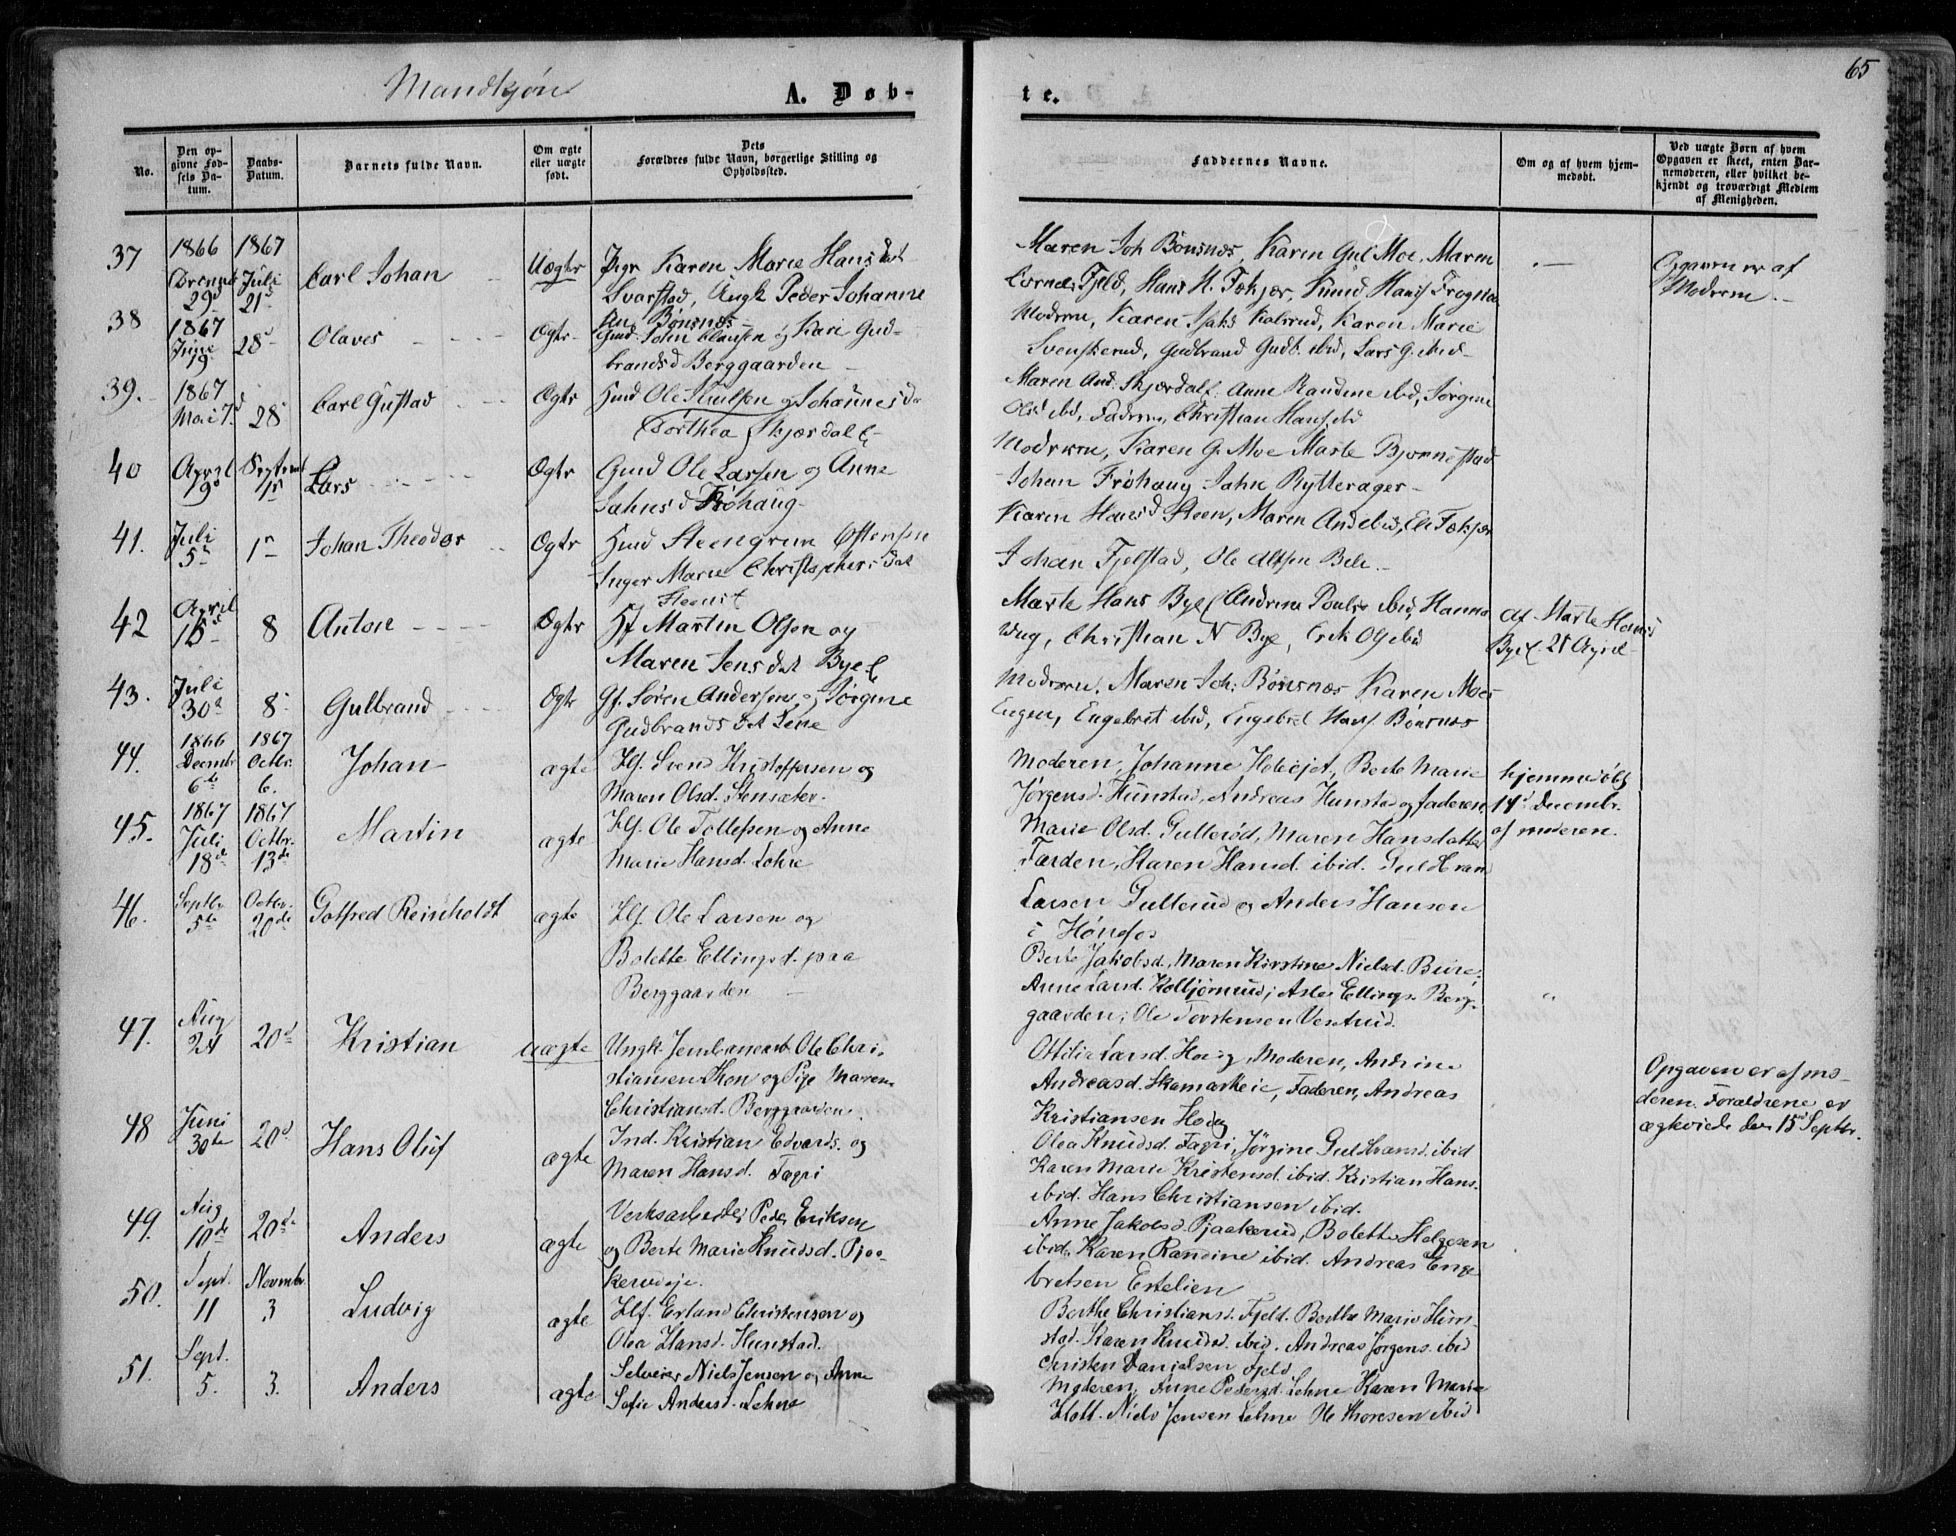 65
Mandkjøn
A. Døb-
te.
No.
Den op-
givne Fød-
sels Da-
tum.
Daabs-
Datum.
Barnets fulde Navn.
Om ægte
eller uægte
født.
Dets
Forældres fulde Navn, borgerlige Stilling og
Opholdssted.
Faddernes Navne.
Om og af hvem hjem-
medøbt.
Ved uægte Børn af hvem
Opgaven er skeet, enten Bar-
nemoderen, eller hvilket be-
kjendt og troværdigt Medlem
af Menigheden.
37
1866
29
1867
Juli
21
Carl Johan
Uægte
Pige Karen Marie Hansdat
Svarstad, Ungk Peder Johanne
sen Bønsnæs
Maren Joh Bønsnæs, Karen Gul Moe, Maren
Fjeld, Hans H. Fækjær, Knud Hans Frogstad
Opgaven er af
Moderen
38
1867
Juni
19
28
Olaves
Ægte
Gmd. John Clausen og Kari Gud-
brandsd Berggaarden
Moderen, Karen Marie
Svenskerud, Gudbrand Gudb. ibid, Lars G. ibid
39.
1867
Mai 7d
28
Carl Gustad
Ægte
Hmd Ole og Johannesd
Dorthea Skjærdal
Maren And. Skjærdal, Anne Randine ibid, Jørgine
Ols ibid, Faderen, Christian Hans ibid
40
April
19
Septemb
1
Lars
Ægte
Gmd Ole Larsen og Anne
Jahnsd Frøhaug
Moderen, Karen G. Moe Marte Bjønnestad
Johan Frøhaug Jahn Rytterager
41.
Juli
5
1
Johan Theodor
Ægte
Hmd Steengrim Østensen
Inger Marie Christophersdat
Karen Hansd Steen, Maren And ibid, Fækjær
Johan Fjelstad, Ole
42
April
8
Anton
Ægte
Hf Martin Olsen og
Maren Jensdat Bye
Marte Hans Bye, Andrine Pouls ibid, Hanna
Christian N Bye, Erik Ols ibid
af Marte Hans
Bye 21 April
43.
Juli
30
8
Gulbrand
Ægte
Gf. Søren Andersen og Jørgine
Gudbrandsdat
Moderen, Maren Joh: Bønsnæs Karen Moes
Engen, Engebret ibid, Engebret Hans Bønsnæs
44.
1866
Decembr
6te
1867
Octbr.
6.
Johan
ægte
Hf. Svend Kristoffersen og
Maren Olsd. Stensæter.
Moderen, Johanne, Berte Marie
Jørgensd. Hunstad, Andreas Hunstad og faderen.
hjemmedøbt
14d Decembr.
af moderen.
45.
1867
Juli
18de
1867
Octbr.
13de
Martin
ægte
Hf. Ole Tollefsen og Anne
Marie Hansd. Lohre
Marie Olsd. Gullerød, Maren Hansdatter
Færden, Karen Hansd. ibid. Gulbran
Larsen Gullerud og Anders Hansen
i Hønefos
46.
Septbr
5te
Octbr.
20de
Gotfred Reinholdt
ægte
Hf. Ole Larsen og
Bolette Ellingsd. paa
Berggaarden
Berte Jakobsd, Maren Kirstine Nielsd. Bure;
Anne Larsd. Kolbjørnrud; Asle Ellings. Berg-
gaarden; Ole Torstensen Vestrud.
"
47.
Aug
24
20d
Kristian
uægte
Ungk. Jernbanearb. Ole Chri-
stiansen Skon og Pige Maren
Christiansd. Berggaarden.
Ottilie Larsd. Houg, Moderen, Andrine
Andreasd. Skamarkeie, Faderen, Andreas
Kristiansen Houg
Opgaven er af mo-
deren. Forældrene er
ægteviede den 15d Septbr.
48
Juni
30te
20d
Hans Oluf
ægte
Ind. Kristian Edvards. og
Maren Hansd. Fagri
Olea Knudsd. Fagri, Jørgine Gulbransd. ibid
Karen Marie Kristensd. ibid. Kristian Hans.
ibid. Hans Christiansen ibid.
49.
Aug
10de
20d.
Anders
ægte
Verksarbeider Peder Eriksen
og Berte Marie Knudsd. Pjaa-
kerudeje.
Anne Jakobsd. Pjaakerud, Bolette Helgesen
ibid, Karen Randine ibid. Andreas Enge
bretsen Estelien
50.
Sept.
11
Novmbr.
3
Ludvig
ægte
Hf. Erland Christensen og
Olea Hansd. Hunstad.
Berthe Christiansd. Fjeld. Berthe Marie Hun-
stad. Karen Knudsd. ibid. Andreas Jørgens. ibid
Christen Danielsen Fjeld
51.
Sept.
5.
3.
Anders
ægte
Selveier Niels Jensen og Anne
Sofie Andersd. Lehne
Moderen, Anne Pedersd. Lehne Karen Marie
Holt. Niels Jensen Lehne Ole Thoresen ibid